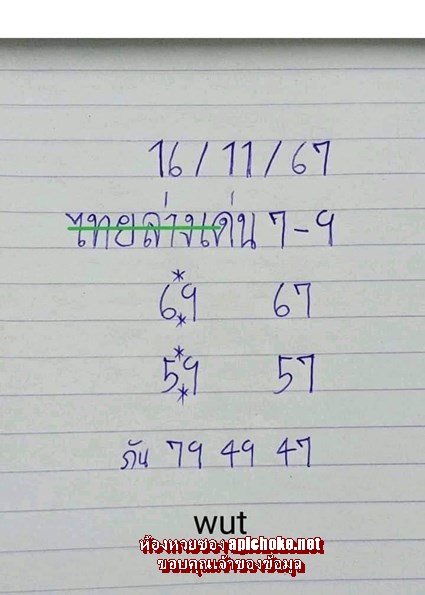 16/11/67
ไทยล่างเด่น 7-9
*69* 67
*59* 57
กัน 79 49 47
wut
ห้องหวยซอง apichoke.net
ขอบคุณเจ้าของข้อมูล